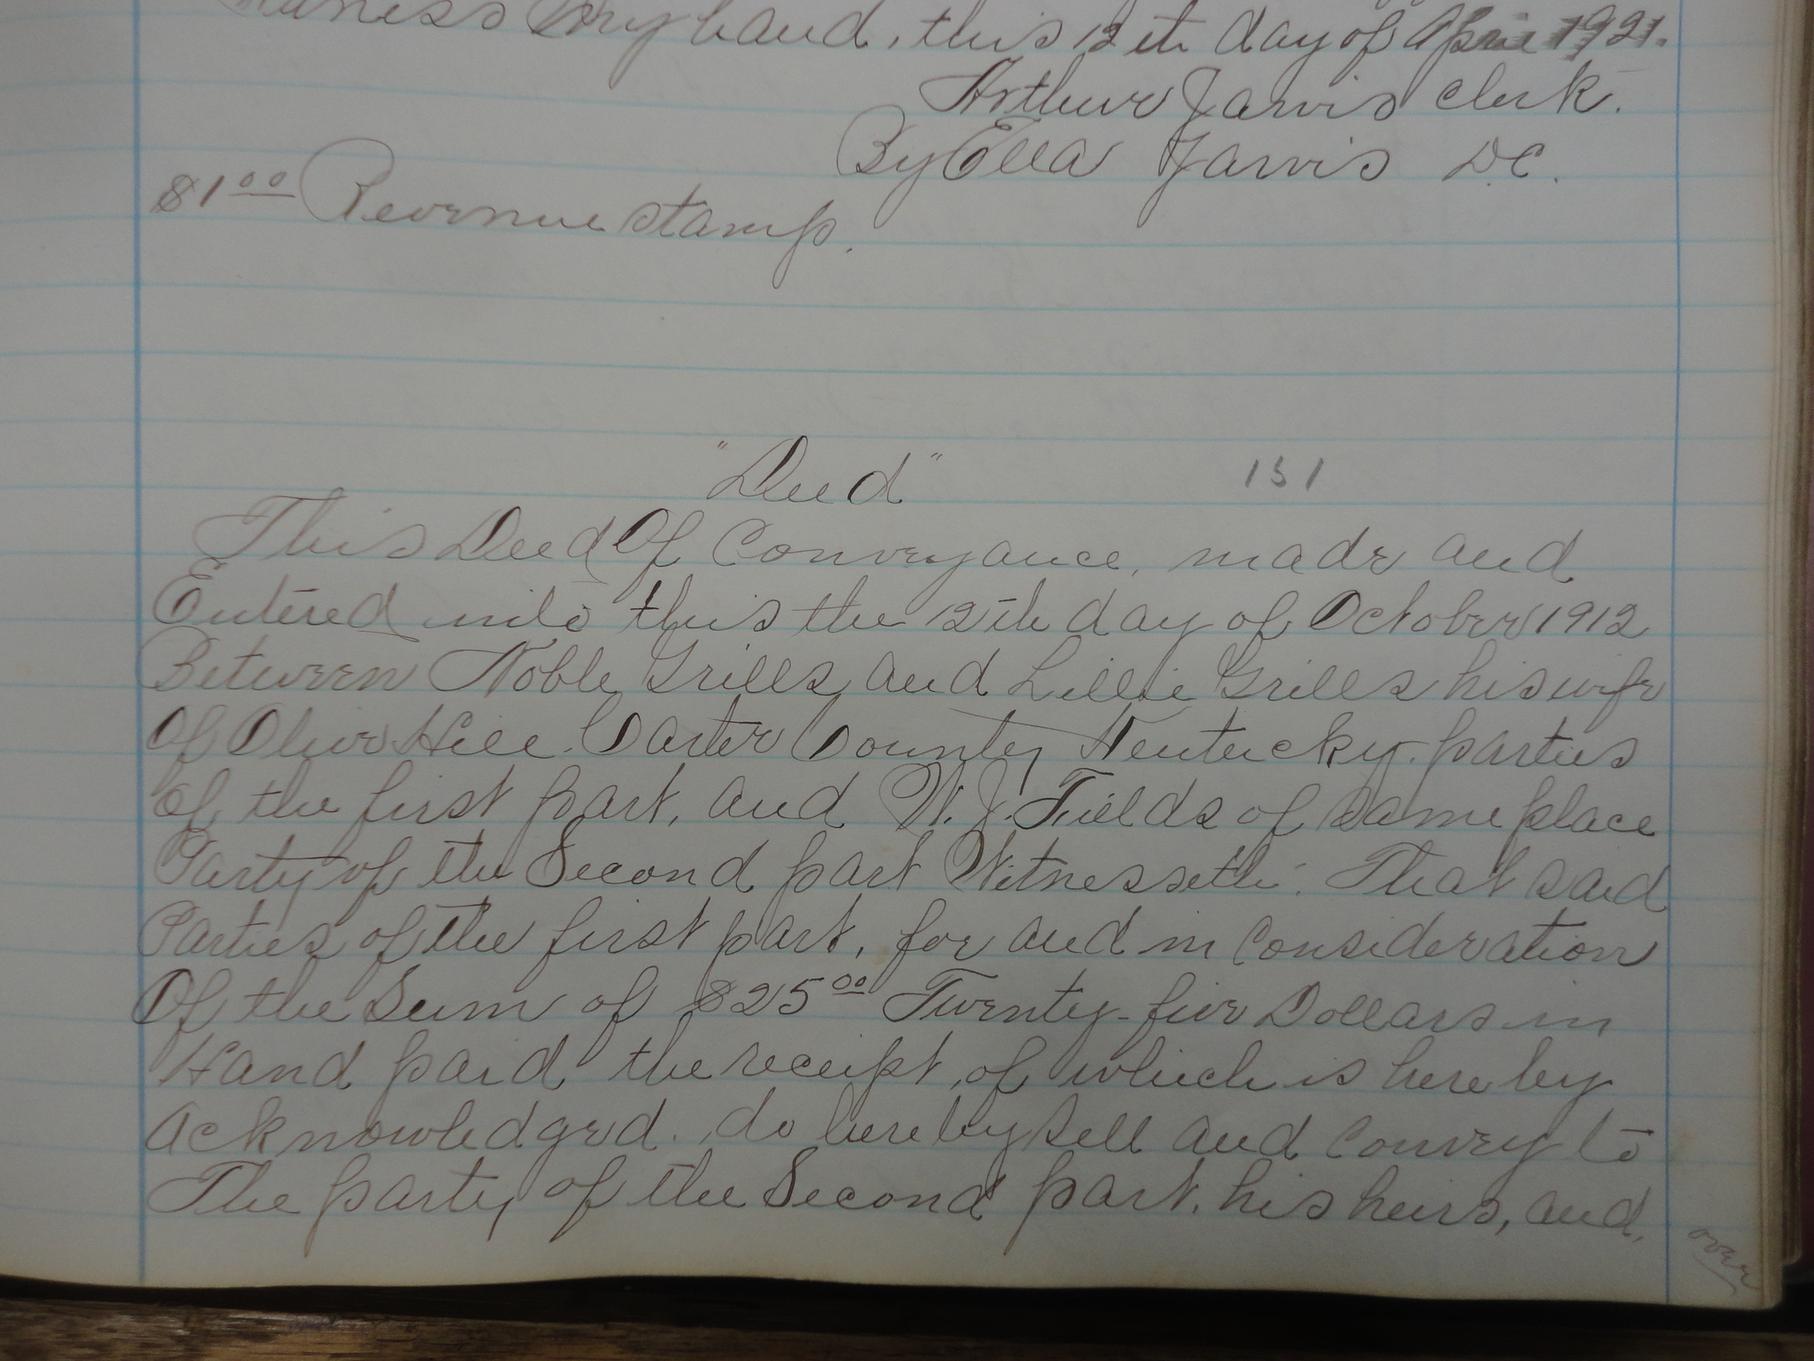 Witness my hand, this 12th day of April 1921.
Arthur Jarvis Clerk.
By Ella Jarvis D.C.
$1 00 Revenue stamp.
"Deed" 151
This Deed Of Conveyance, made and
Entered into this the 12th day of October 1912
Between Noble Grills, and Lillie Grills his wife
Of Olive Hill Carter County Kentucky. parties
Of the first part, and W. J. Fields of same place
Party of the Second part Witnesseth: That said
Parties of the first part, for and in Consideration
Of the Sum of $25 00 Twenty-five Dollars in
Hand paid the receipt of which is here by
Acknowledged. do hereby sell and Convey to
The party of the Second part, his heirs, and,
over